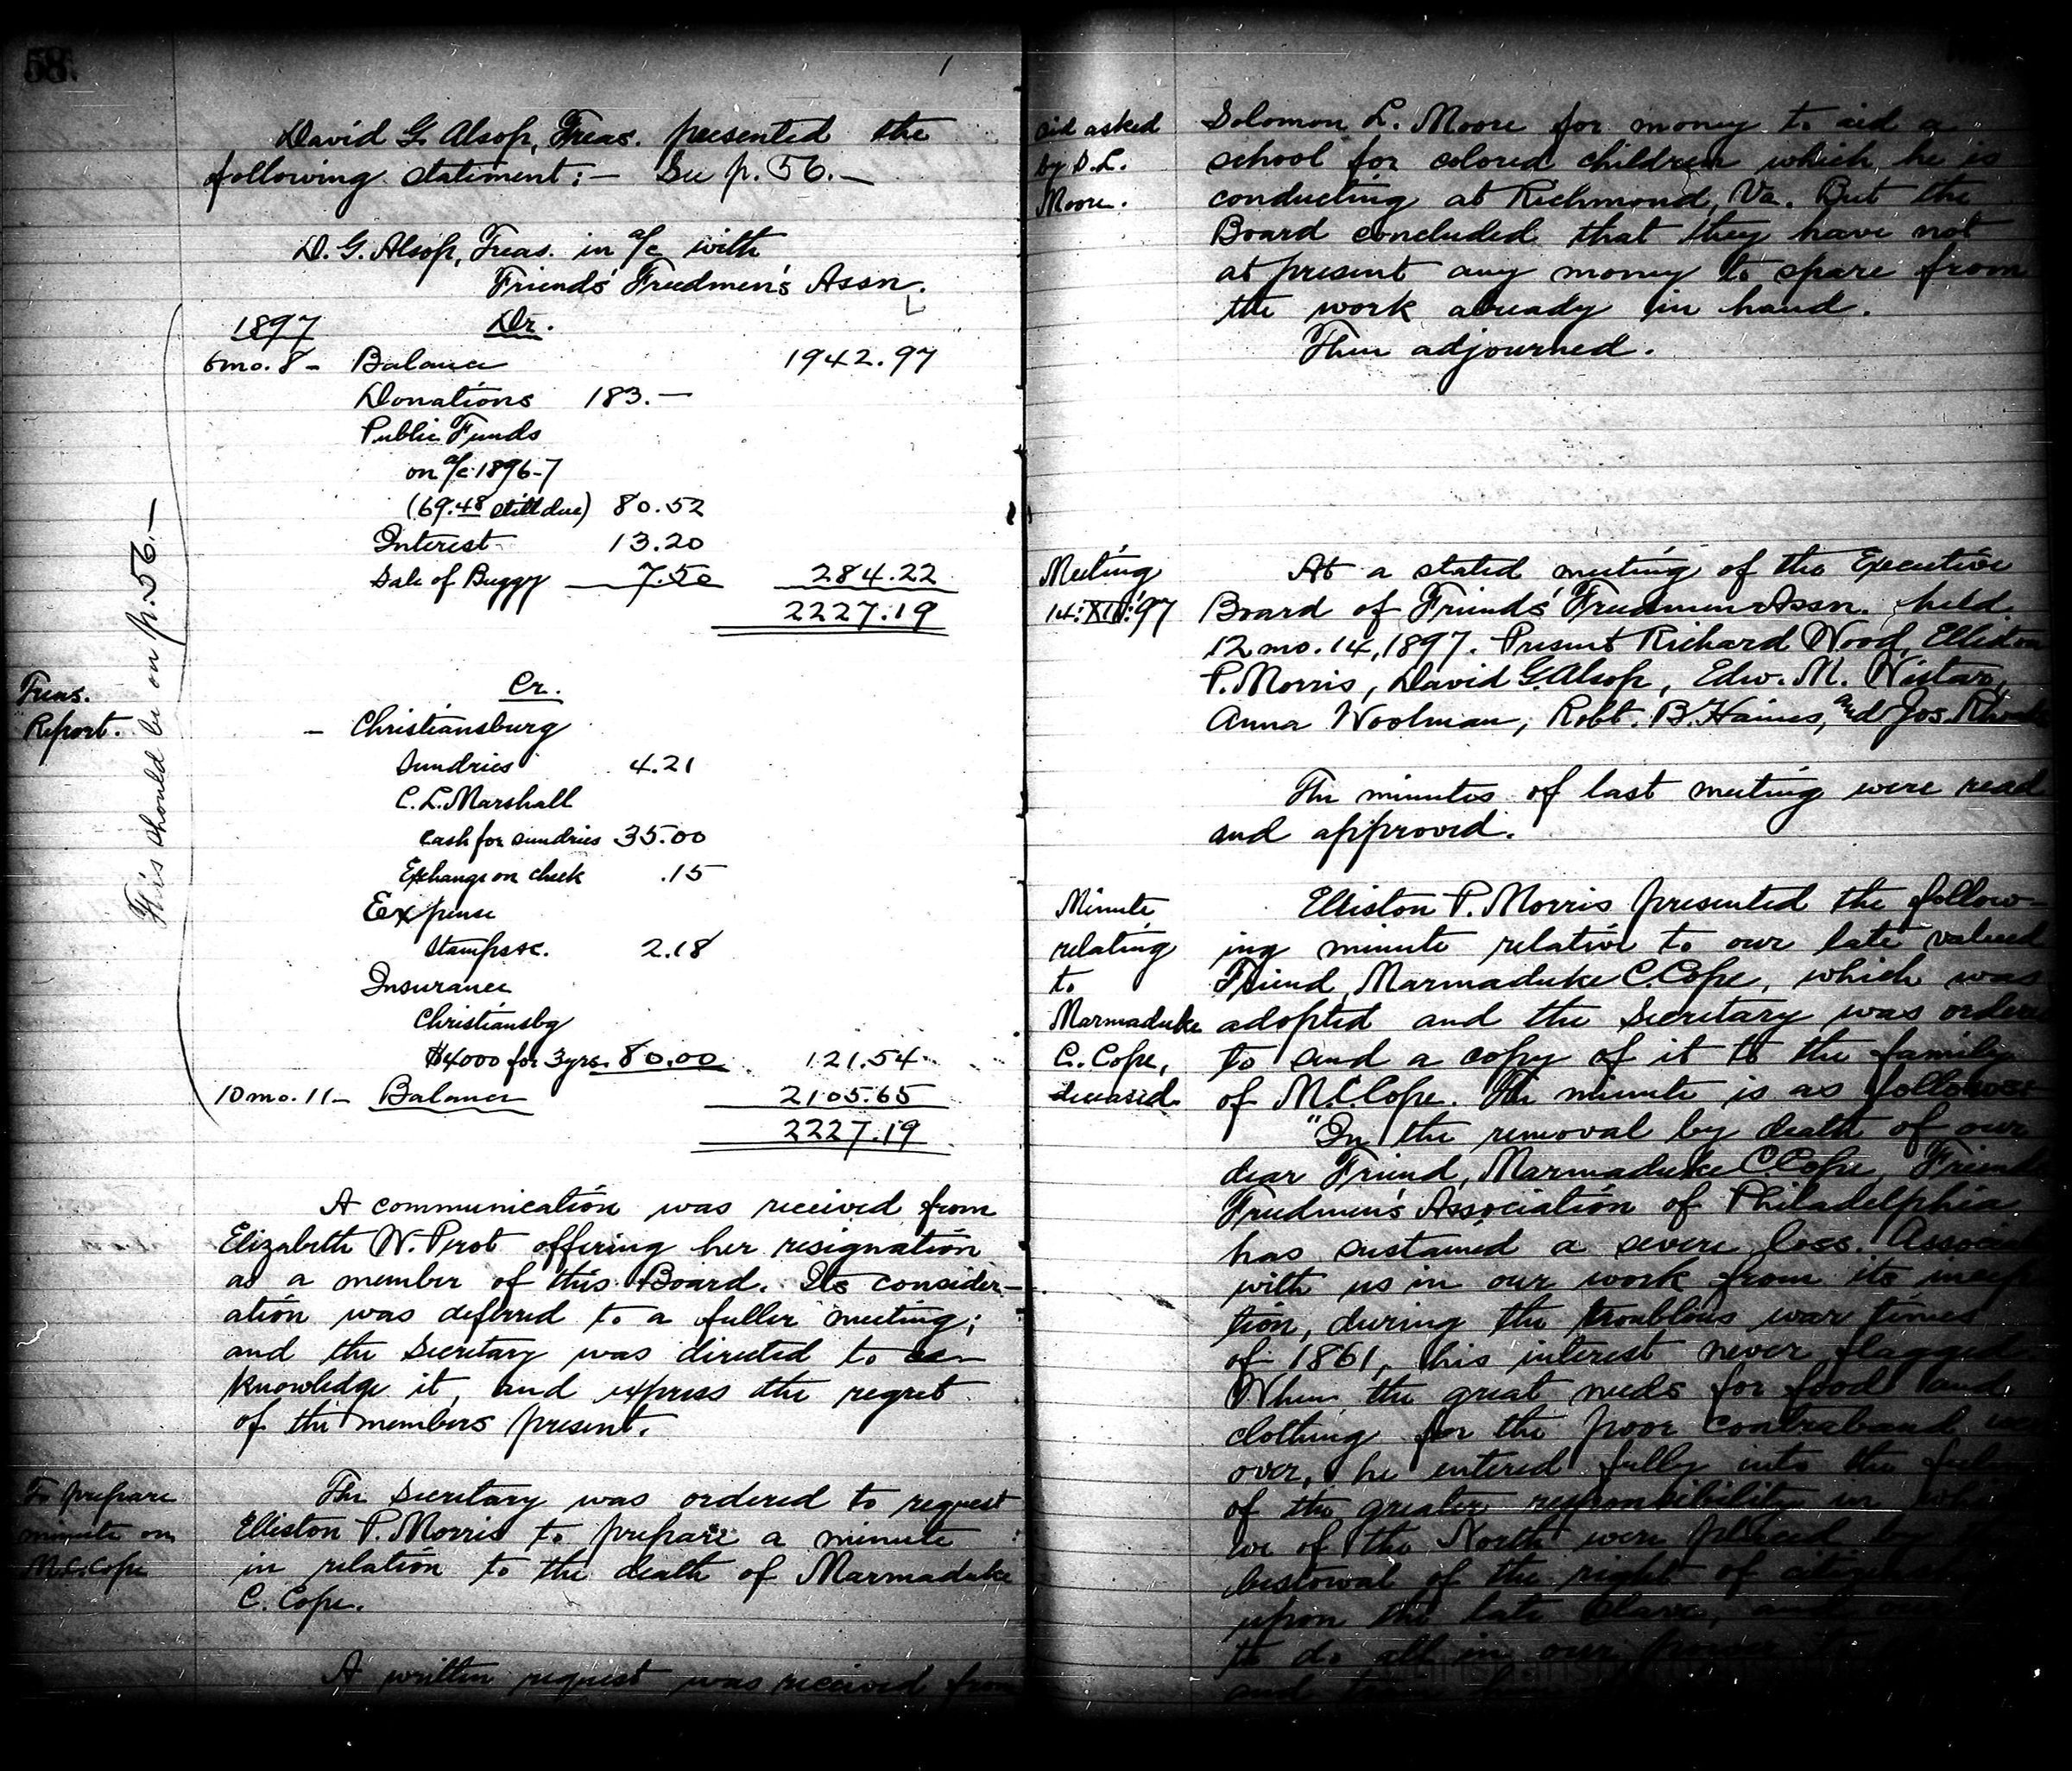 58.
David G. Alsop, Treas. presented the
following statement:— See p. 56.—
D. G. Alsop, Treas. in a/c with
Friends' Freedmen's Assn.
1897 Dr.
6mo. 8— Balance 1942.97
Donations 183.—
Public Funds
on a/c 1896-7
(69.48 still due) 80.52
Interest 13.20
Sale of Buggy 7.50 284.22
2227.19
This should be on p. 56.—
Treas.
Report.
Cr.
— Christiansburg
Sundries 4.21
C. L. Marshall
Cash for sundries 35.00
Exchange on check .15
Expense
Stamps &c. 2.18
Insurance
Christiansbg
$4000 for 3yrs. 80.00 121.54
10mo. 11— Balance 2105.65
2227.19
A communication was received from
Elizabeth W. Perot offering her resignation
as a member of this Board. Its consider-
ation was deferred to a fuller meeting;
and the Secretary was directed to
knowledge it, and express the regret
of the members present.
To prepare
minute on
M.C. Cope
The Secretary was ordered to request
Elliston P. Morris to prepare a minute
in relation to the death of Marmaduke
C. Cope.
A written request was received from
Aid asked
by S.L.
Moore.
Solomon L. Moore for money to aid a
school for colored children which he is
conducting at Richmond, Va. But the
Board concluded that they have not
at present any money to spare from
the work already in hand.
Then adjourned.
Meeting
14:XII:97
At a stated meeting of the Executive
Board of Friends' Freedmen's Assn. held
12mo. 14, 1897. Present Richard Wood, Elliston
P. Morris, David G. Alsop, Edw. M. Wistar,
Anna Woolman, Robt. B. Haines, and Jos. Rhoads
The minutes of last meeting were read
and approved.
Minute
relating
to
Marmaduke
C. Cope,
deceased.
Elliston P. Morris presented the follow-
ing minute relative to our late valued
Friend, Marmaduke C. Cope, which was
adopted and the Secretary was ordered
to send a copy of it to the family
of M.C. Cope. The minute is as follows:
"In the removal by death of our
dear Friend, Marmaduke C Cope, Friends
Freedmen's Association of Philadelphia
has sustained a severe loss. Associated
with us in our work from its incep
tion, during the troublous war times
of 1861, his interest never flagged
When the great needs for food and
clothing for the poor contraband
over, he entered fully into the
of the greater responsibility in which
we of the North were placed by the
bestowal of the right of citizenship
upon the late slave, and
to do all in our power
and